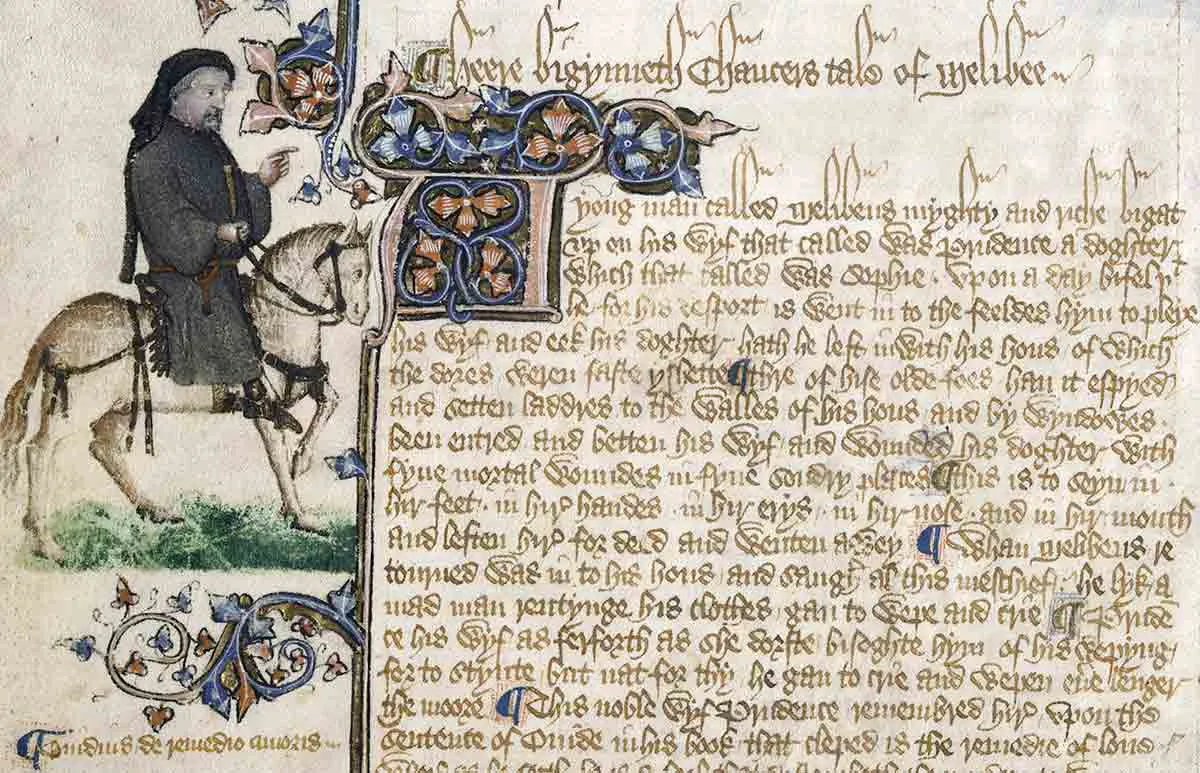 ¶ Heere bigynneth Chaucers tale of Melibee
A yong man called Melibeus myghty and riche bigat
up on his wyf that called was Prudence a doghter
which that called was Sophie . Upon a day bifel yt
he for his desport is went in to the feeldes hym to pleye
his wyf and eek his doghter hath he left inwith his hous of which
the dores weren faste yshette ¶ thre of hise olde foes han it espyed
and setten laddres to the walles of his hous and by wyndowes
been entred and betten his wyf and wounded his doghter with
fyue mortal woundes in fyue sondry places ¶ this is to seyn in
hir feet . in hir handes . in hir erys . in hir nose . and in hir mouth
and leften hir for deed and wenten awey ¶ Whan Melibeus re
tourned was in to his hous and saugh al this meschief . he lyk a
mad man rentynge his clothes . gan to wepe and crie ¶ Pruden
ce his wyf as ferforth as she dorste bisoghte hym of his wepyng
for to stynte but nat for thy he gan to crie and wepen euere lenger
the moore ¶ This noble wyf Prudence remembred hir upon the
sentence of Ouide in his book that cleped is the remedie of loue
¶ Ouidius de remedio amoris